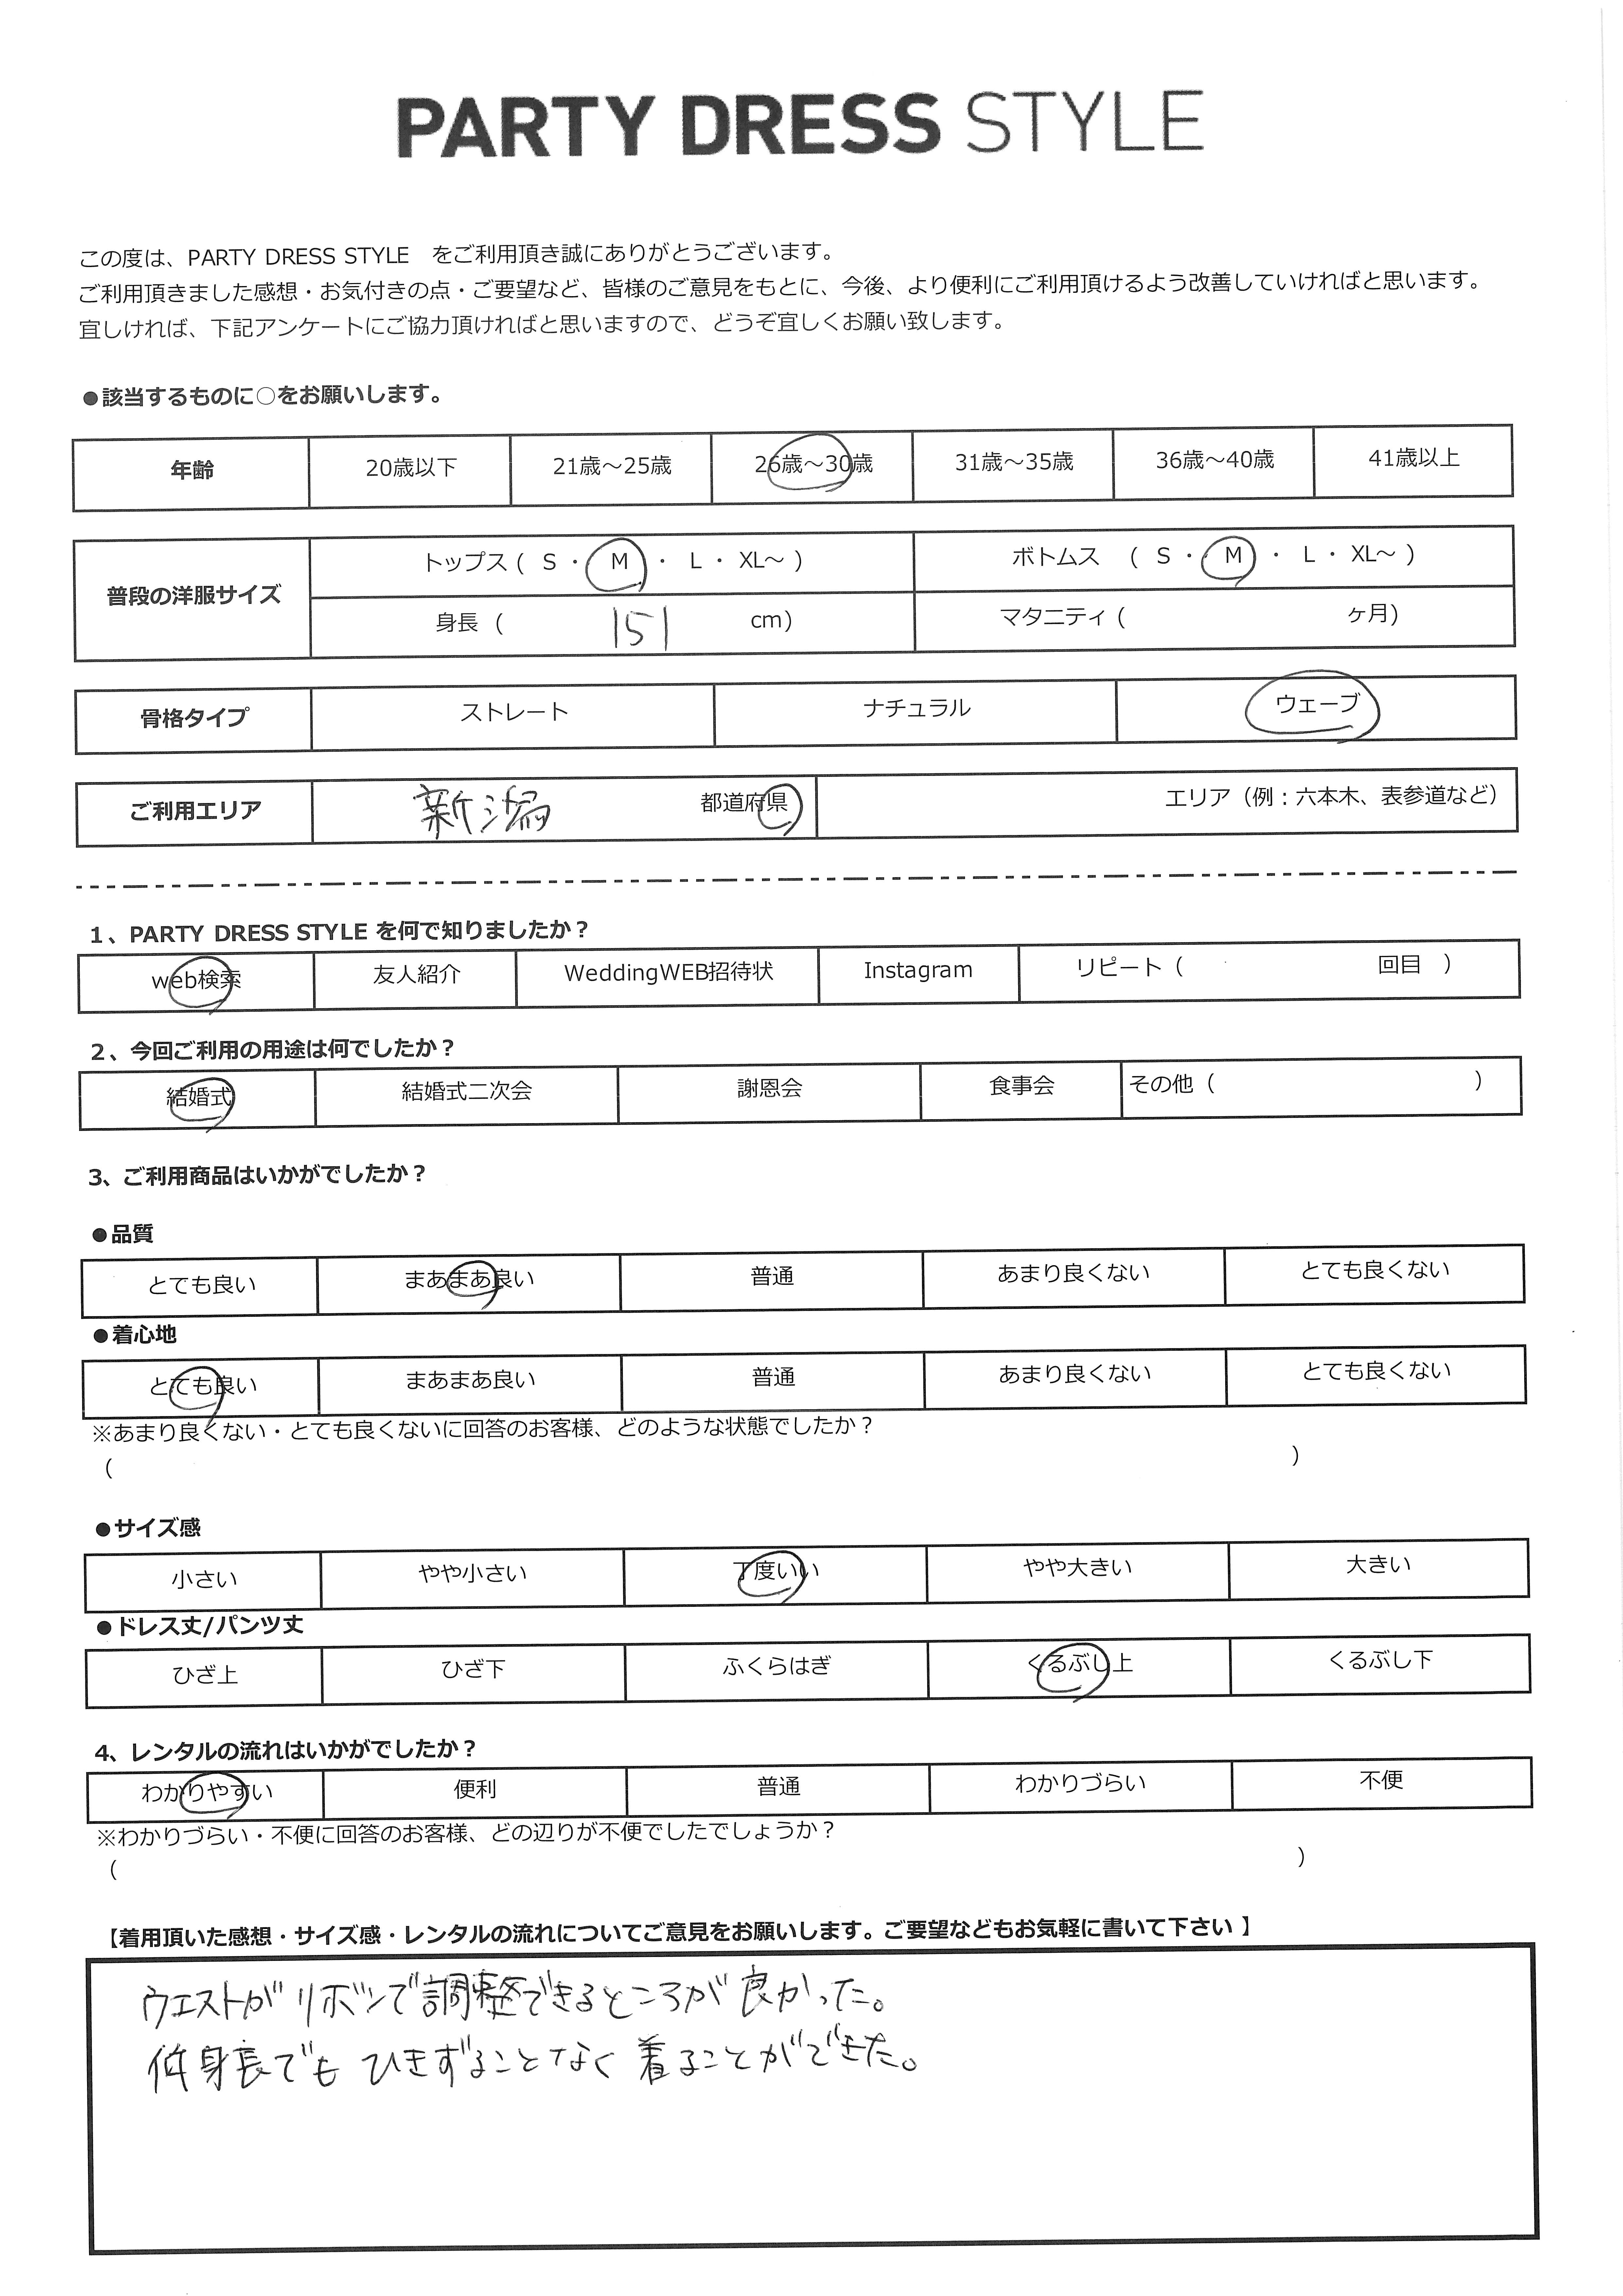 PARTY DRESS STYLE
この度は、PARTY DRESS STYLE　をご利用頂き誠にありがとうございます。
ご利用頂きました感想・お気付きの点・ご要望など、皆様のご意見をもとに、今後、より便利にご利用頂けるよう改善していければと思います。
宜しければ、下記アンケートにご協力頂ければと思いますので、どうぞ宜しくお願い致します。
●該当するものに○をお願いします。
年齢 20歳以下 21歳～25歳 26歳～30歳 31歳～35歳 36歳～40歳 41歳以上
普段の洋服サイズ
トップス ( S ・ M ・ L ・ XL～ ) ボトムス ( S ・ M ・ L ・ XL～ )
身長 ( 151 cm) マタニティ ( ヶ月)
骨格タイプ ストレート ナチュラル ウェーブ
ご利用エリア 新潟 都道府県 エリア（例：六本木、表参道など）
1、PARTY DRESS STYLE を何で知りましたか？
web検索 友人紹介 WeddingWEB招待状 Instagram リピート（ 回目 ）
2、今回ご利用の用途は何でしたか？
結婚式 結婚式二次会 謝恩会 食事会 その他（ ）
3、ご利用商品はいかがでしたか？
●品質
とても良い まあまあ良い 普通 あまり良くない とても良くない
●着心地
とても良い まあまあ良い 普通 あまり良くない とても良くない
※あまり良くない・とても良くないに回答のお客様、どのような状態でしたか？
（ ）
●サイズ感
小さい やや小さい 丁度いい やや大きい 大きい
●ドレス丈/パンツ丈
ひざ上 ひざ下 ふくらはぎ くるぶし上 くるぶし下
4、レンタルの流れはいかがでしたか？
わかりやすい 便利 普通 わかりづらい 不便
※わかりづらい・不便に回答のお客様、どの辺りが不便でしたでしょうか？
（ ）
【着用頂いた感想・サイズ感・レンタルの流れについてご意見をお願いします。ご要望などもお気軽に書いて下さい 】
ウエストがリボンで調整できるところが良かった。
低身長でもひきずることなく着ることができた。